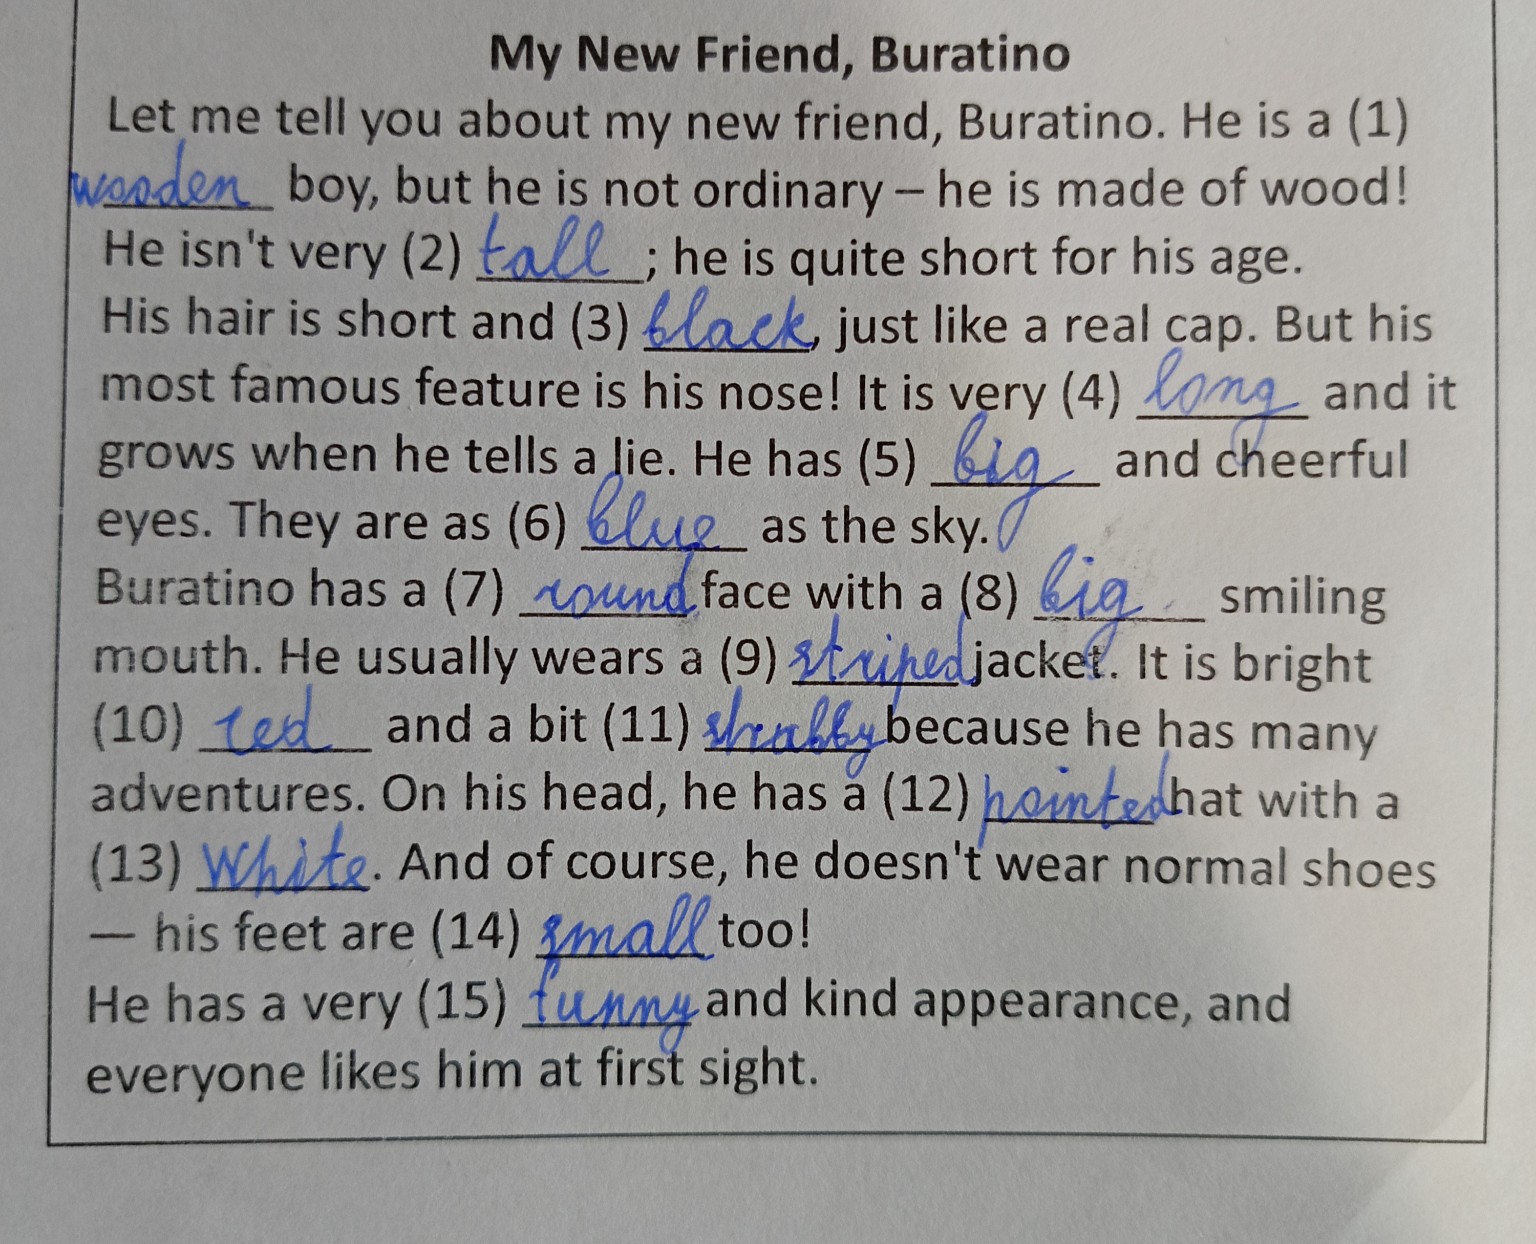 My New Friend, Buratino
Let me tell you about my new friend, Buratino. He is a (1)
wooden boy, but he is not ordinary – he is made of wood!
He isn't very (2) tall ; he is quite short for his age.
His hair is short and (3) black, just like a real cap. But his
most famous feature is his nose! It is very (4) long and it
grows when he tells a lie. He has (5) big and cheerful
eyes. They are as (6) blue as the sky.
Buratino has a (7) round face with a (8) big smiling
mouth. He usually wears a (9) striped jacket. It is bright
(10) red and a bit (11) shabby because he has many
adventures. On his head, he has a (12) pointed hat with a
(13) White. And of course, he doesn't wear normal shoes
— his feet are (14) small too!
He has a very (15) funny and kind appearance, and
everyone likes him at first sight.